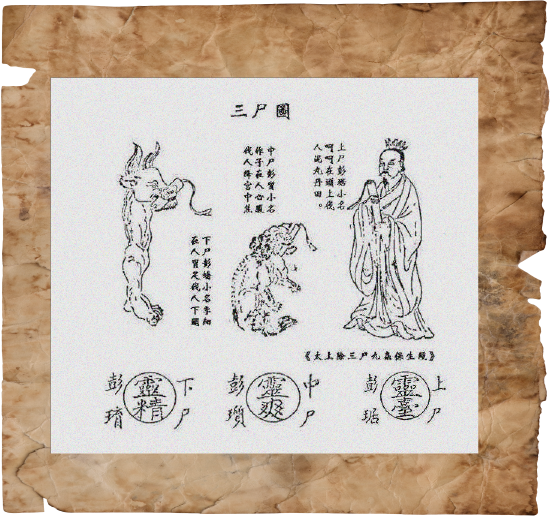 三尸圖
上尸彭倨小名
呵呵在頭上伐
人泥丸丹田。
中尸彭質小名
作子在人心腹
伐人絳宮中焦
下尸彭矯小名季細
在人胃足伐人下關
《太上除三尸九蟲保生經》
上尸
靈臺
彭琚
中尸
靈爽
彭瓆
下尸
靈精
彭